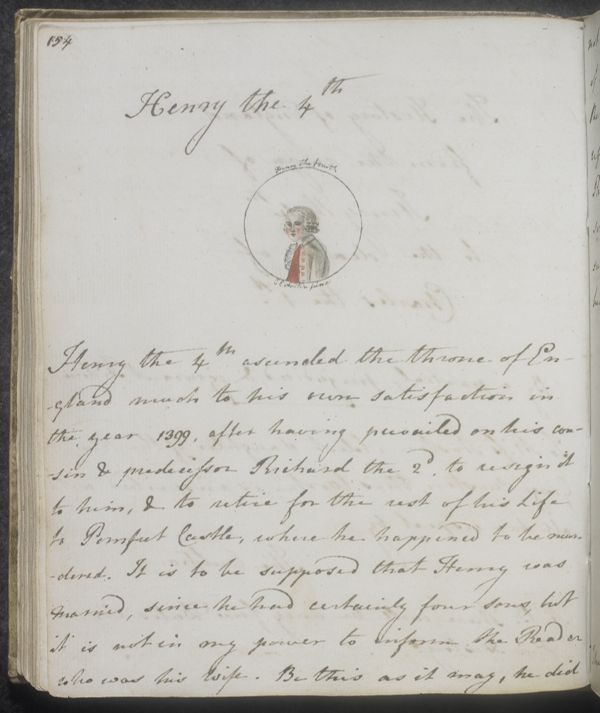 154
Henry the 4th
Henry the fourth
Henry the 4th ascended the throne of En-
-gland much to his own satisfaction in
the year 1399, after having prevailed on his cou-
-sin & predecessor Richard the 2d, to resign it
to him, & to retire for the rest of his Life
to Pomfret Castle, where he happened to be mur-
-dered. It is to be supposed that Henry was
married, since he had certainly four sons, but
it is not in my power to inform the Reader
who was his Wife. Be this as it may, he did